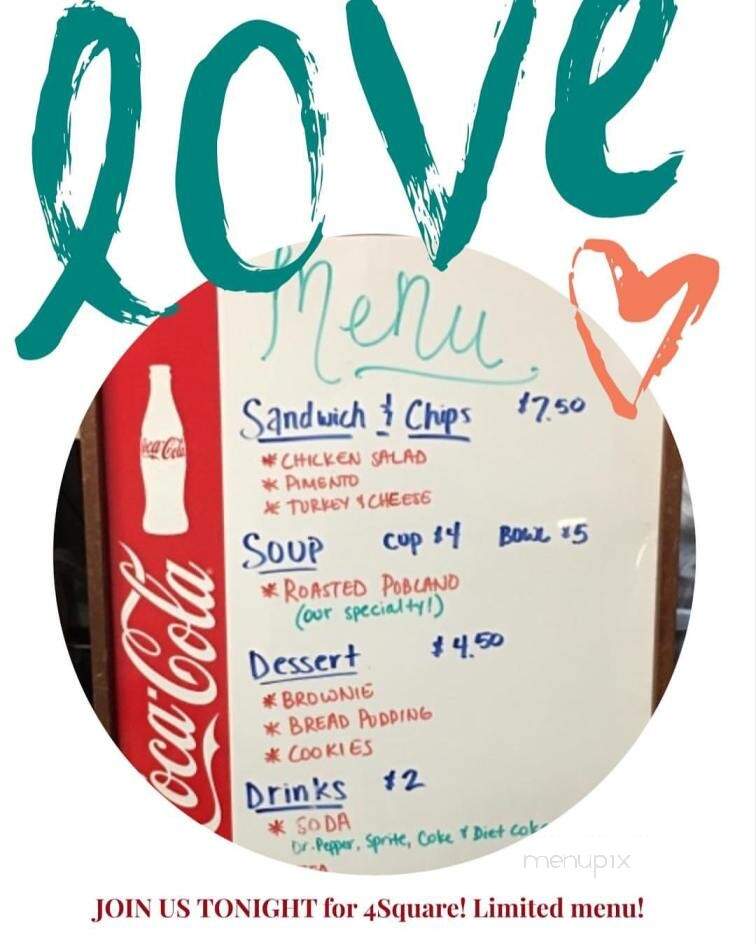 love
Menu
Sandwich & Chips $7.50
* CHICKEN SALAD
* PIMENTO
* TURKEY & CHEESE
Soup Cup $4 Bowl $5
* ROASTED POBLANO
(our specialty!)
Dessert $4.50
* BROWNIE
* BREAD PUDDING
* COOKIES
Drinks $2
* SODA
Dr. Pepper, Sprite, Coke & Diet Coke
Coca-Cola
Coca-Cola
menupix
JOIN US TONIGHT for 4Square! Limited menu!